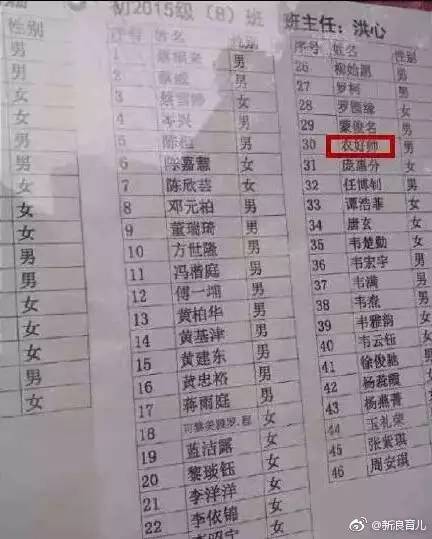 性别
男
男
女
女
男
男
女
女
女
男
男
女
女
女
女
男
女
初2015级（8）班 班主任：洪心
序号 姓名 性别
1 男
2 男
3 女
4 岑兴 男
5 陈 男
6 陈嘉慧 女
7 陈欣芸 女
8 邓元柏 男
9 董瑞琦 女
10 方世隆 男
11 冯潛庭 男
12 傅一珊 女
13 黄柏华 男
14 黄基津 男
15 黄建东 男
16 黄忠裕 男
17 蒋雨庭 女
18 女
19 蓝洁露 女
20 黎琰钰 女
21 李洋洋 女
22 李依锦 女
序号 姓名 性别
26 柳始源 男
27 罗柯 男
28 罗圆缘 女
29 蒙俊名 男
30 农好帅 男
31 庞惠分 女
32 任博钊 男
33 谭浩菲 女
34 唐玄 女
35 韦楚勤 女
36 韦宏宇 男
37 韦满 男
38 韦焘 男
39 韦雅韵 女
40 韦云钰 女
41 徐俊驰 男
42 杨蕊霞 女
43 杨燕菁 女
44 玉礼荣 男
45 张紫琪 女
46 周安琪 女
@新浪育儿